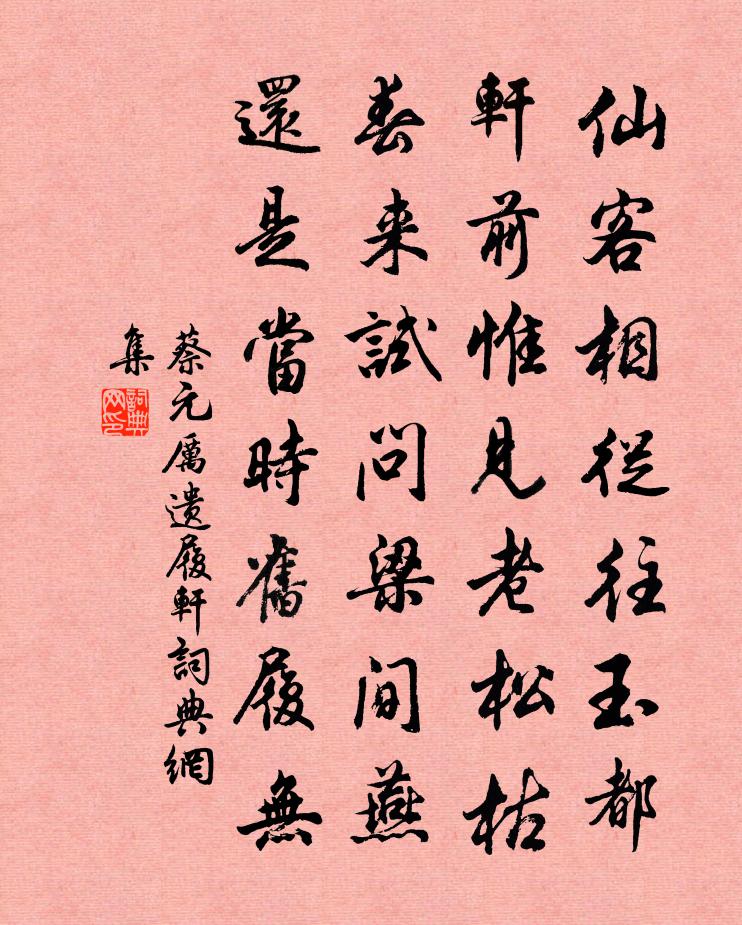 仙客相從往玉都
軒前惟見老松枯
春来試問梁间燕
還是當時舊履無
蔡元厲遺履軒詞典網
集
詞典
网印